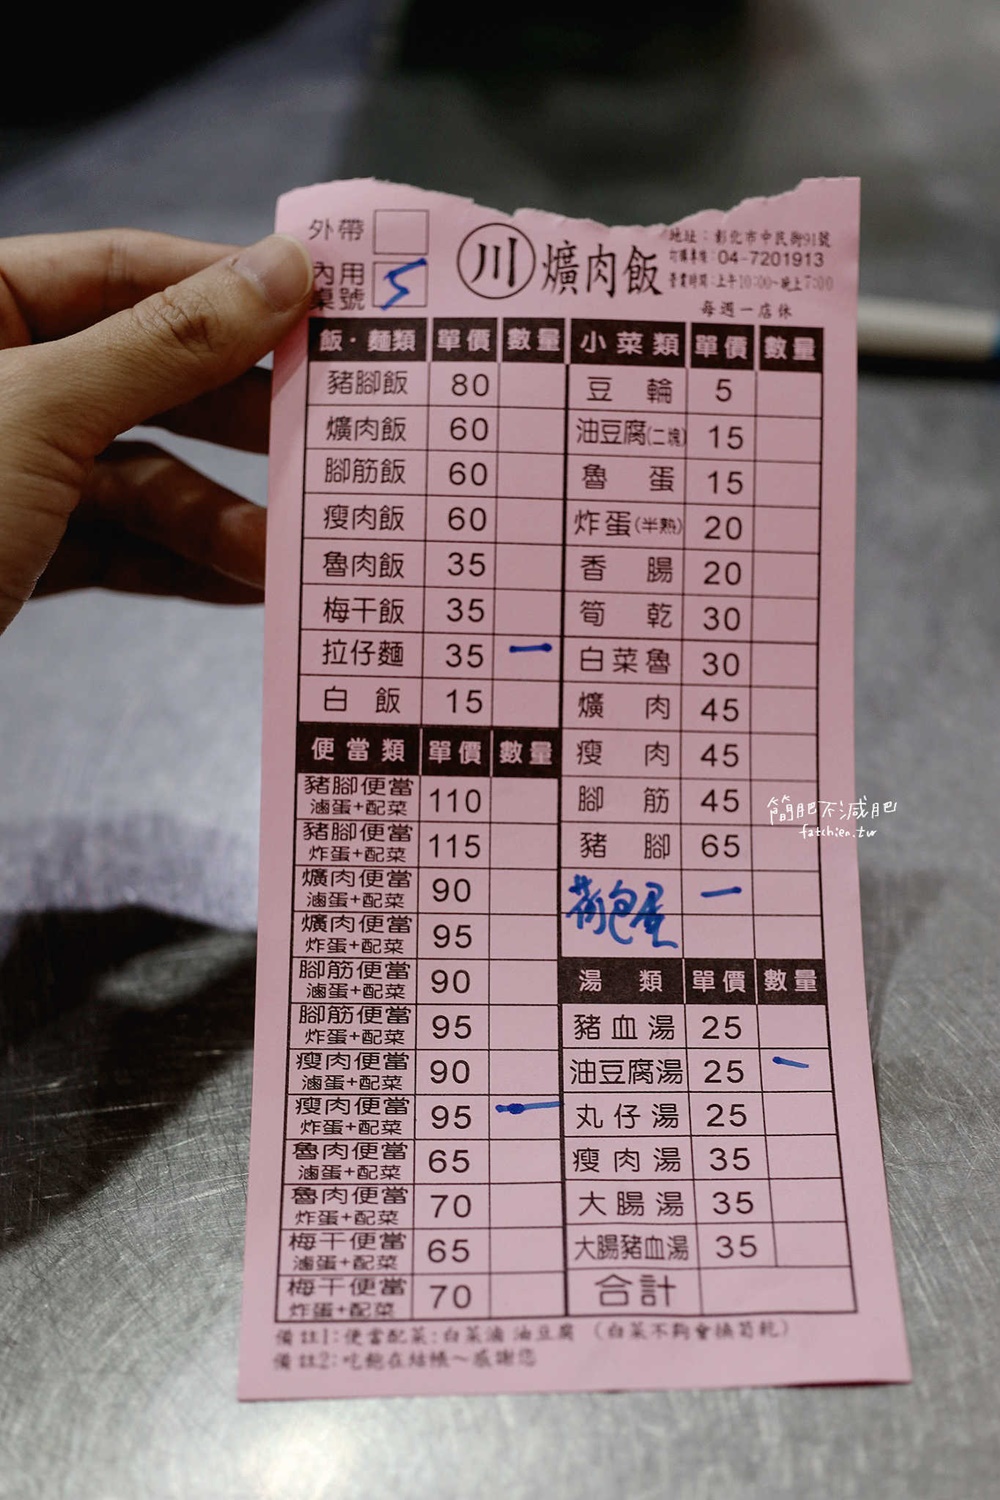 外帶
內用桌號 5
川 爌肉飯
地址：彰化市中民街91號
訂購專線：04-7201913
營業時間：上午10:00~晚上7:00
每週一店休
飯・麵類 單價 數量
豬腳飯 80
爌肉飯 60
腳筋飯 60
瘦肉飯 60
魯肉飯 35
梅干飯 35
拉仔麵 35 一
白飯 15
便當類 單價 數量
豬腳便當 滷蛋+配菜 110
豬腳便當 炸蛋+配菜 115
爌肉便當 滷蛋+配菜 90
爌肉便當 炸蛋+配菜 95
腳筋便當 滷蛋+配菜 90
腳筋便當 炸蛋+配菜 95
瘦肉便當 滷蛋+配菜 90
瘦肉便當 炸蛋+配菜 95 一
魯肉便當 滷蛋+配菜 65
魯肉便當 炸蛋+配菜 70
梅干便當 滷蛋+配菜 65
梅干便當 炸蛋+配菜 70
小菜類 單價 數量
豆輪 5
油豆腐(二塊) 15
魯蛋 15
炸蛋(半熟) 20
香腸 20
筍乾 30
白菜魯 30
爌肉 45
瘦肉 45
腳筋 45
豬腳 65
荷包蛋 一
湯類 單價 數量
豬血湯 25
油豆腐湯 25 一
丸仔湯 25
瘦肉湯 35
大腸湯 35
大腸豬血湯 35
合計
備註1：便當配菜：白菜滷 油豆腐 （白菜不夠會換筍乾）
備註2：吃飽在結帳~感謝您
簡肥不減肥
fatchien.tw